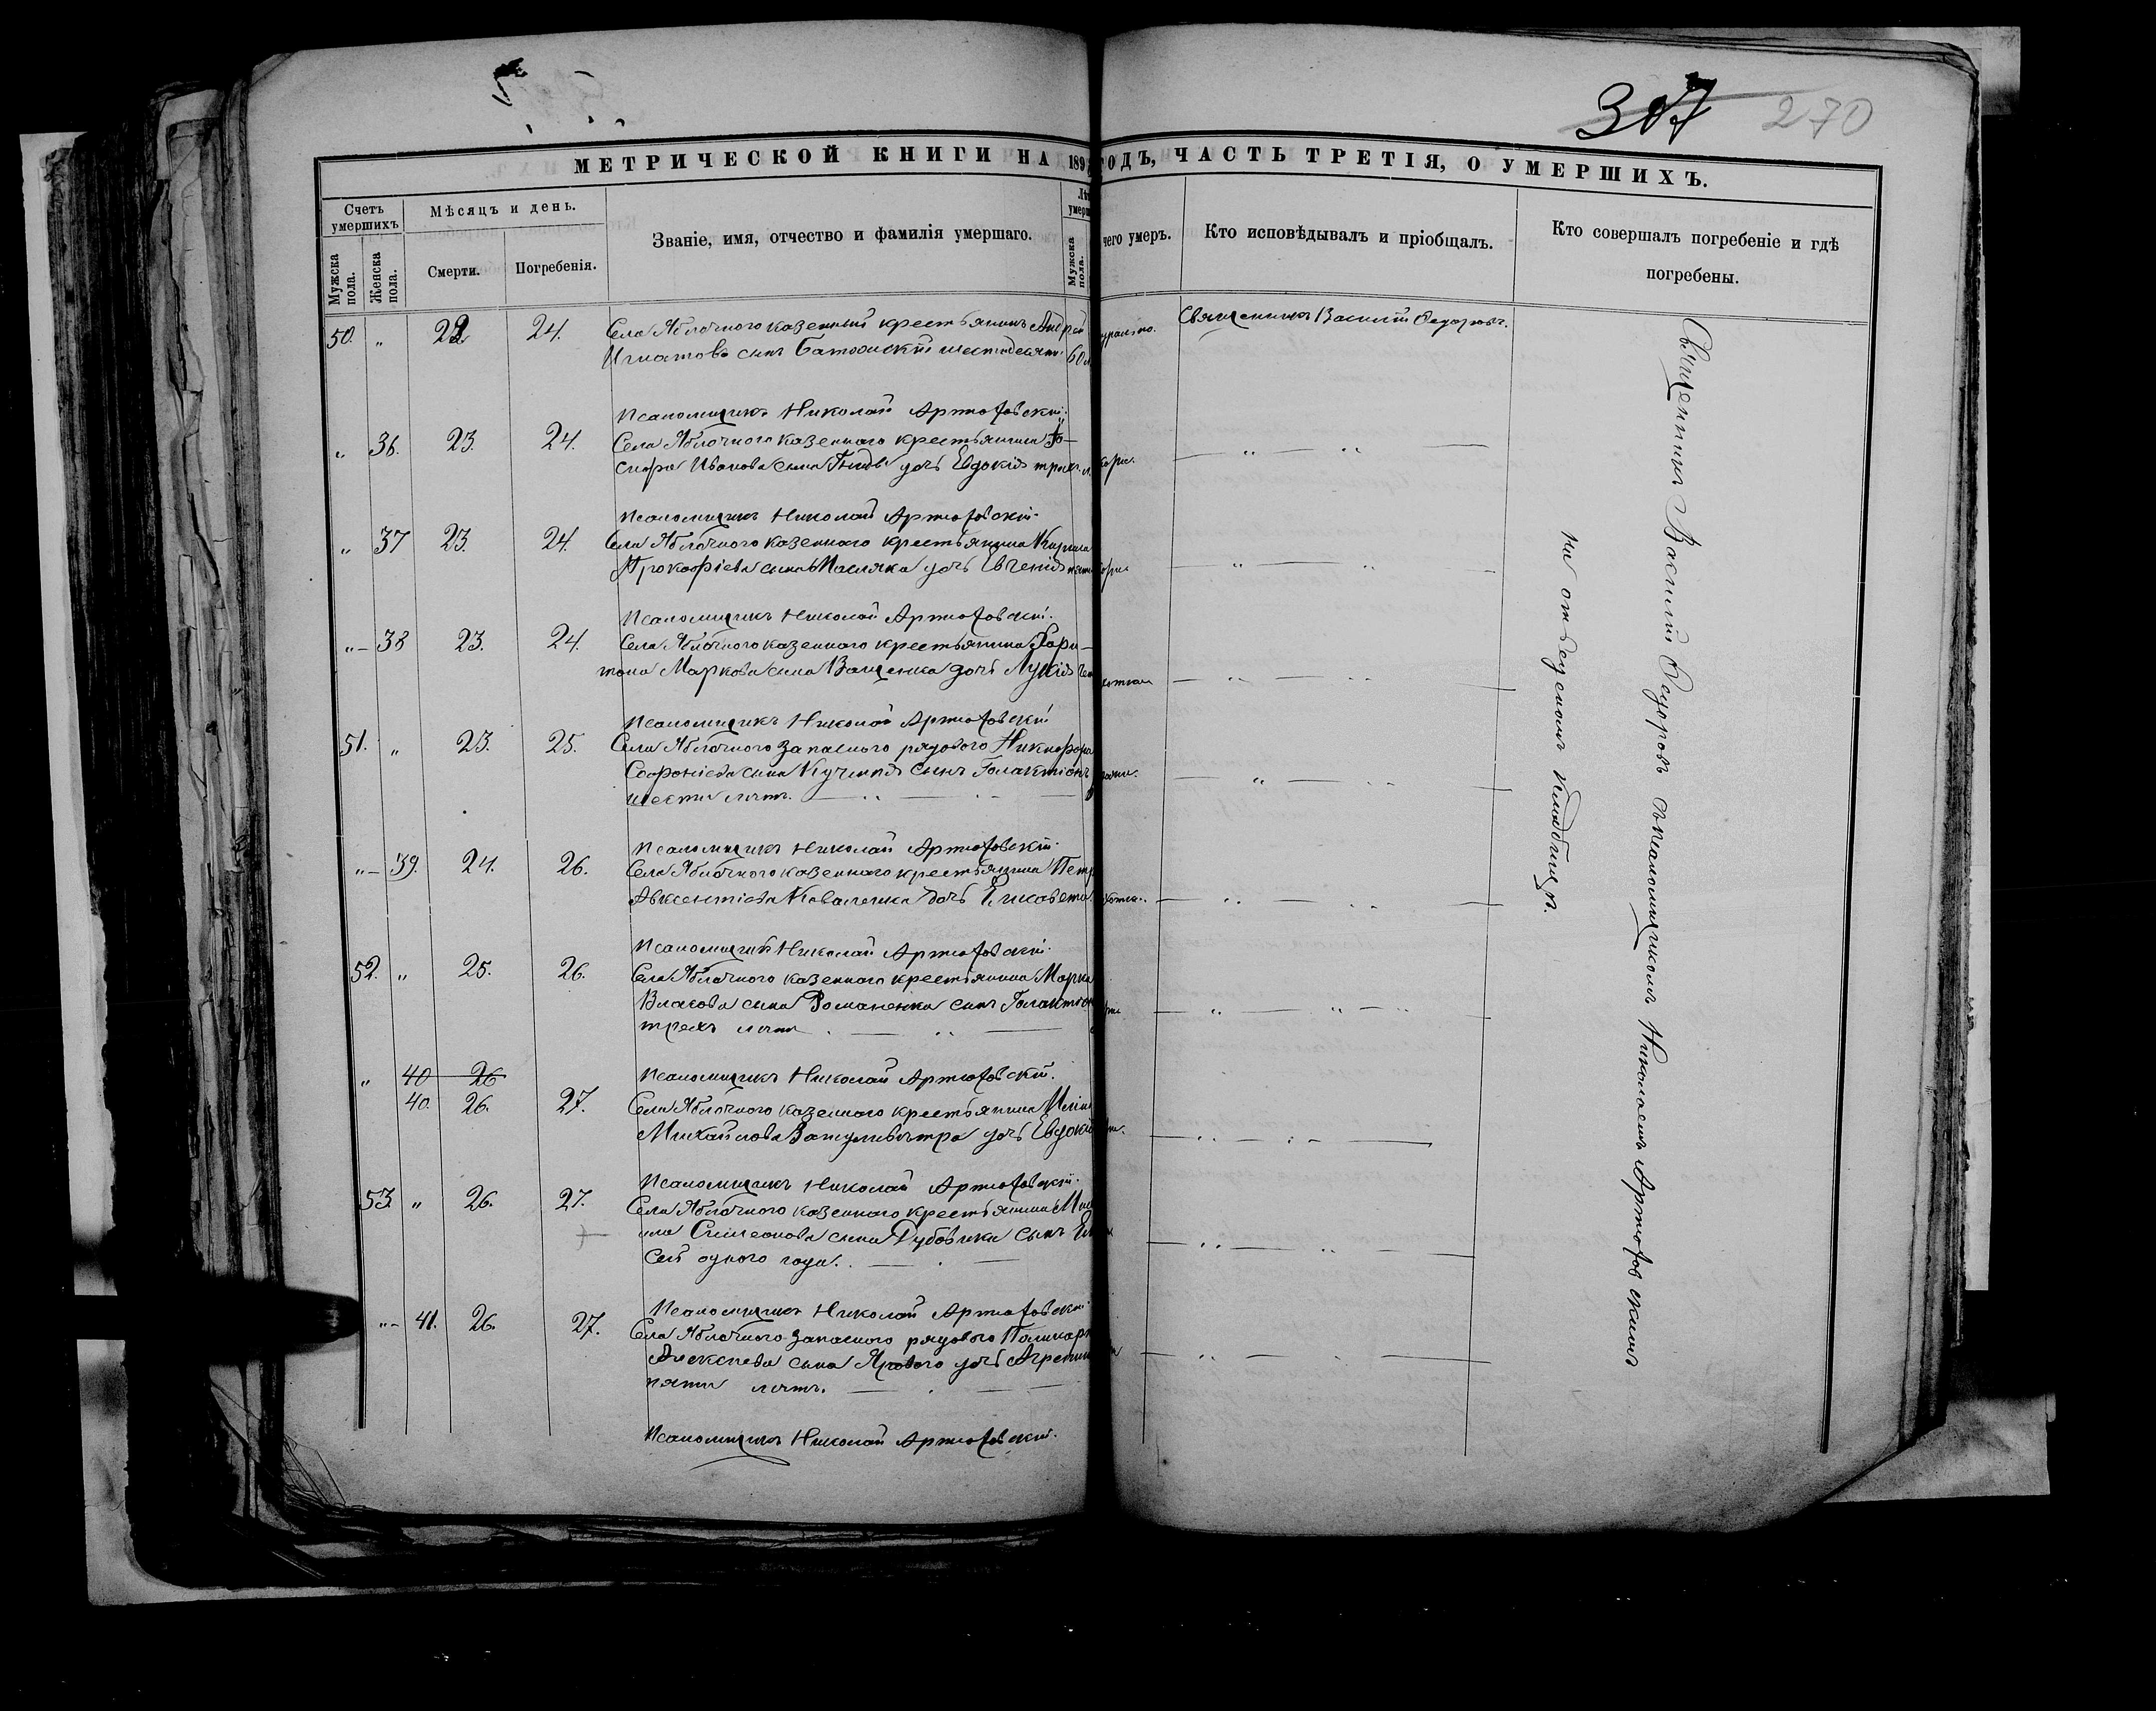 307 270
МЕТРИЧЕСКОЙ КНИГИ НА 189 ГОДЪ, ЧАСТЬ ТРЕТІЯ, О УМЕРШИХЪ.
Счетъ умершихъ
Мужска пола.
Женска пола.
Мѣсяцъ и день.
Смерти.
Погребенія.
Званіе, имя, отчество и фамилія умершаго.
Мужска пола.
чего умеръ.
Кто исповѣдывалъ и пріобщалъ.
Кто совершалъ погребеніе и гдѣ
погребены.
50. " 22 24. Села Яблочного казенный крестьянинъ Андрей
Игнатовъ сынъ 60
Священникъ Василій Ѳедоровъ.
Псаломщикъ Николай Артюховскій.
" 36. 23. 24. Села Яблочного казенного крестьянина
Иванова сына дочь Евдокія трехъ
Псаломщикъ Николай Артюховскій.
" 37 23. 24. Села Яблочного казенного крестьянина Кирила
Прокофіева сына Масляка дочь Евгенія
Псаломщикъ Николай Артюховскій.
" 38 23. 24. Села Яблочного казенного крестьянина Хари-
тона Маркова сына Ващенка дочь Лукія
Псаломщикъ Николай Артюховскій
51. " 23. 25. Села Яблочного запасного рядового Никифора
Софроніева сына сынъ Галактіонъ
шести лѣтъ.
Псаломщикъ Николай Артюховскій.
" 39. 24. 26. Села Яблочного казенного крестьянина Петр
Авксентіева Коваленка дочь Елисавета
Псаломщикъ Николай Артюховскій.
52. " 25. 26. Села Яблочного казенного крестьянина Марка
Власова сына Романенка сынъ Галактіон
трехъ лѣтъ
Псаломщикъ Николай Артюховскій.
" 40 26
40. 26. 27. Села Яблочного казенного крестьянина Иліи
Михайлова дочь Евдокі
Псаломщикъ Николай Артюховскій.
53 " 26. 27. Села Яблочного казенного крестьянина Миха
ила Симеонова сына Дубовика сынъ Ели
сей одного года.
Псаломщикъ Николай Артюховскій
" 41. 26. 27. Села Яблочного запасного рядового Поликарп
Алексѣева сына Ярового дочь Агрепин
пяти лѣтъ.
Псаломщикъ Николай Артюховскій.
Священникъ Василій Ѳедоровъ съ псаломщикомъ Николаемъ Артюховскимъ
на отведенномъ кладбищѣ.